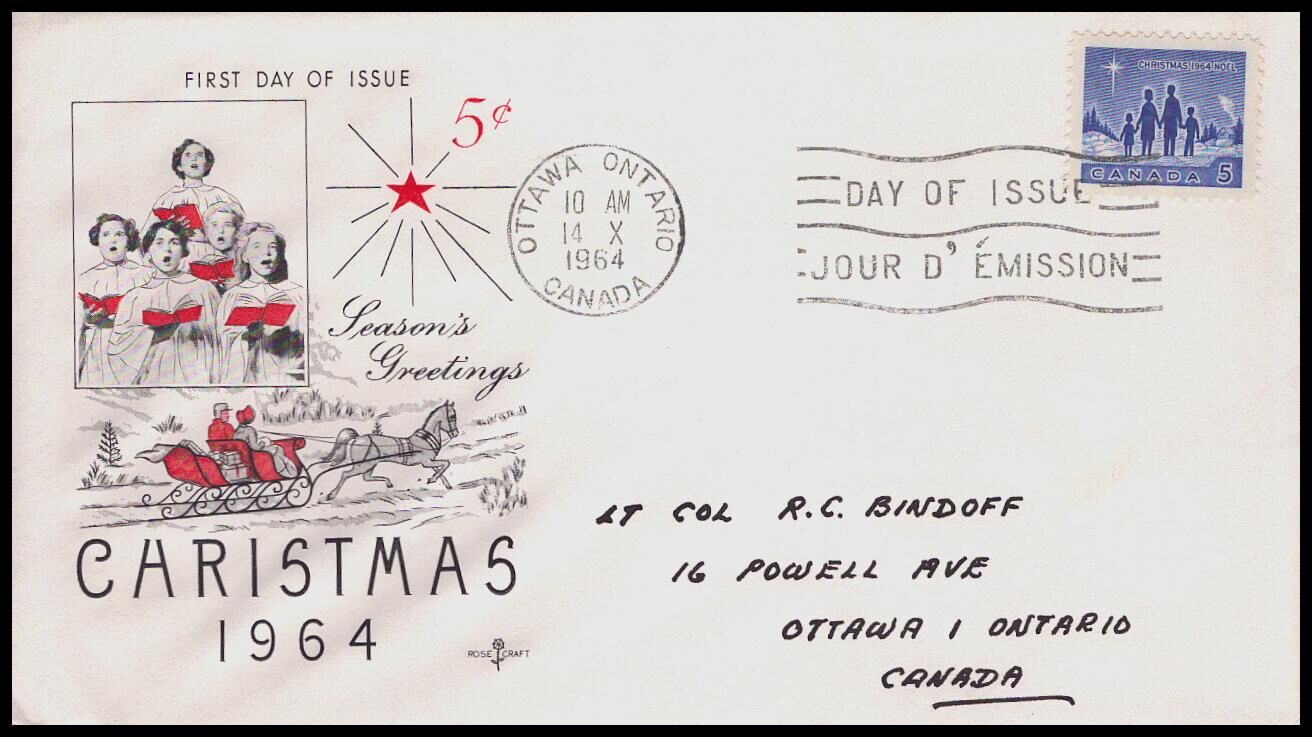 FIRST DAY OF ISSUE
5¢
Season's
Greetings
CHRISTMAS
1964
ROSE CRAFT
OTTAWA ONTARIO
10 AM
14 X
1964
CANADA
DAY OF ISSUE
JOUR D'ÉMISSION
CHRISTMAS 1964 NOËL
CANADA 5
LT COL R.C. BINDOFF
16 POWELL AVE
OTTAWA 1 ONTARIO
CANADA